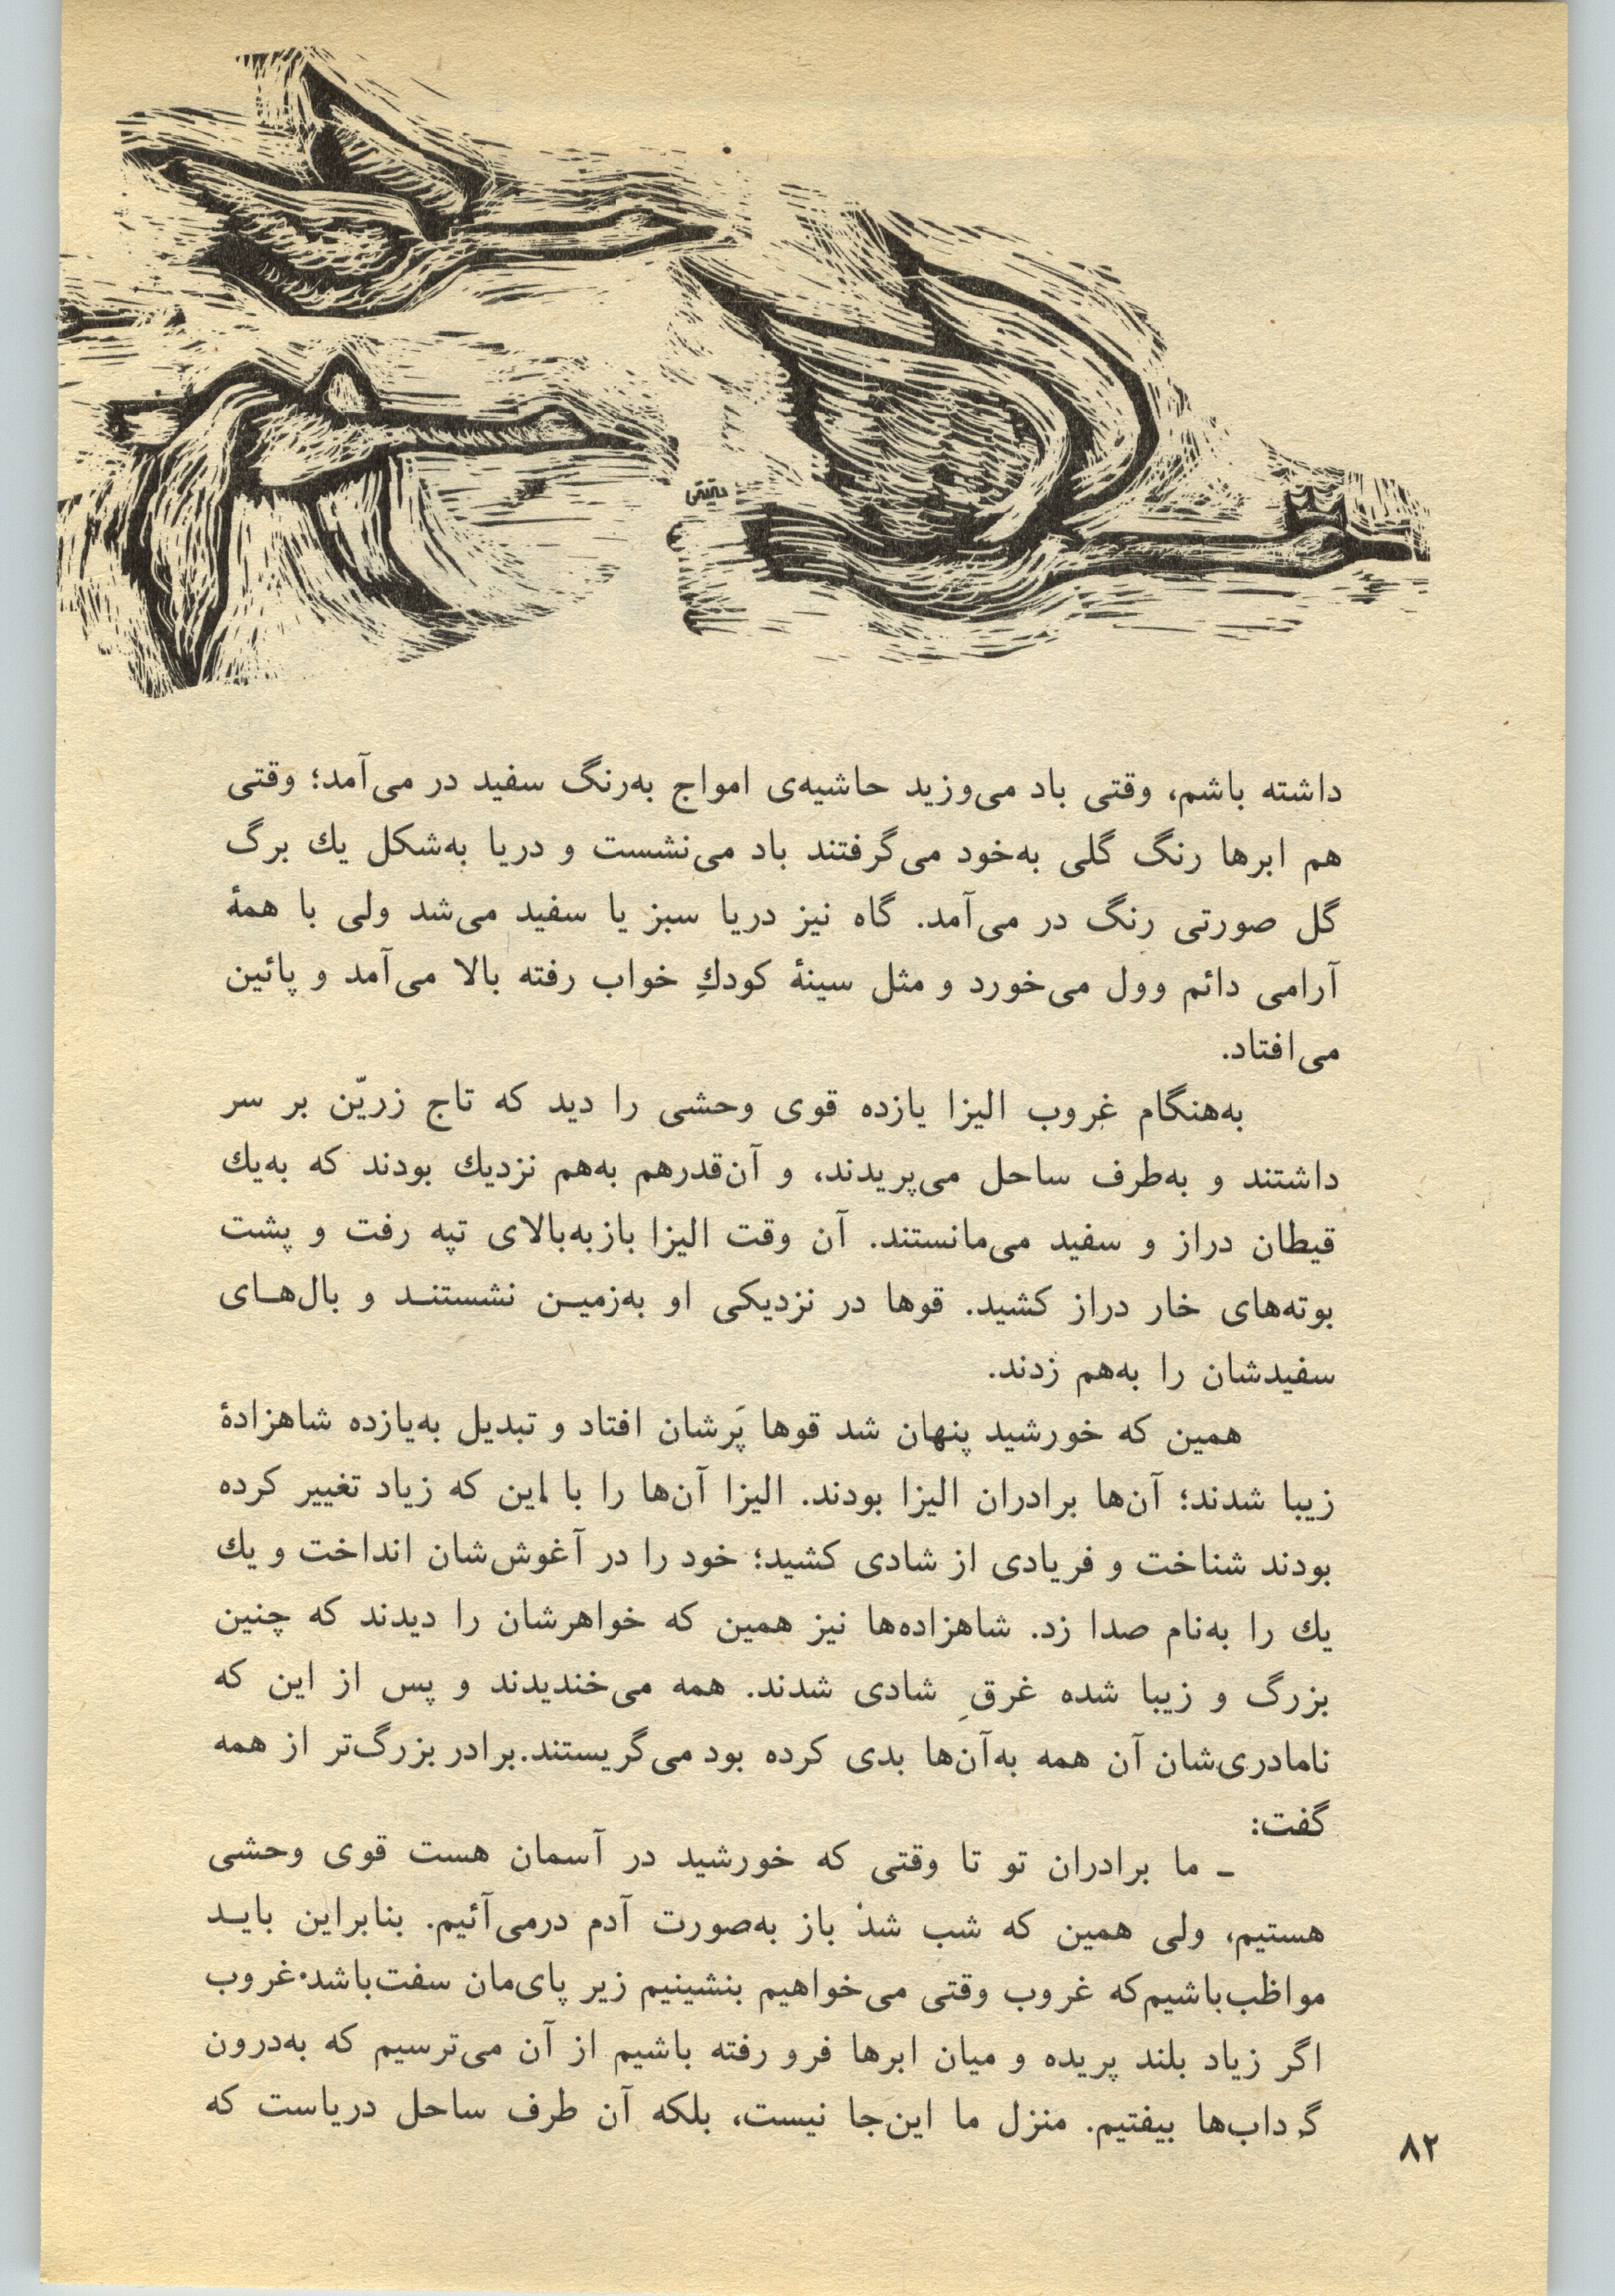 دقیقی
داشته باشم، وقتی باد می‌وزید حاشیه‌ی امواج به‌رنگ سفید در می‌آمد؛ وقتی
هم ابرها رنگ گلی به‌خود می‌گرفتند باد می‌نشست و دریا به‌شکل یك برگ
گل صورتی رنگ در می‌آمد. گاه نیز دریا سبز یا سفید می‌شد ولی با همهٔ
آرامی دائم وول می‌خورد و مثل سینهٔ کودكِ خواب رفته بالا می‌آمد و پائین
می‌افتاد.
به‌هنگام غروب الیزا یازده قوی وحشی را دید که تاج زریّن بر سر
داشتند و به‌طرف ساحل می‌پریدند، و آن‌قدرهم به‌هم نزدیك بودند که به‌یك
قیطان دراز و سفید می‌مانستند. آن وقت الیزا بازبه‌بالای تپه رفت و پشت
بوته‌های خار دراز کشید. قوها در نزدیکی او به‌زمیـن نشستنـد و بال‌هـای
سفیدشان را به‌هم زدند.
همین که خورشید پنهان شد قوها پَرشان افتاد و تبدیل به‌یازده شاهزادهٔ
زیبا شدند؛ آن‌ها برادران الیزا بودند. الیزا آن‌ها را با این که زیاد تغییر کرده
بودند شناخت و فریادی از شادی کشید؛ خود را در آغوش‌شان انداخت و یك
یك را به‌نام صدا زد. شاهزاده‌ها نیز همین که خواهرشان را دیدند که چنین
بزرگ و زیبا شده غرقِ شادی شدند. همه می‌خندیدند و پس از این که
نامادری‌شان آن همه به‌آن‌ها بدی کرده بود می‌گریستند.برادر بزرگ‌تر از همه
گفت:
ـ ما برادران تو تا وقتی که خورشید در آسمان هست قوی وحشی
هستیم، ولی همین که شب شدْ باز به‌صورت آدم درمی‌آئیم. بنابراین بایـد
مواظب‌باشیم‌که غروب وقتی می‌خواهیم بنشینیم زیر پای‌مان سفت‌باشد.غروب
اگر زیاد بلند پریده و میان ابرها فرو رفته باشیم از آن می‌ترسیم که به‌درون
گرداب‌ها بیفتیم. منزل ما این‌جا نیست، بلکه آن طرف ساحل دریاست که
۸۲